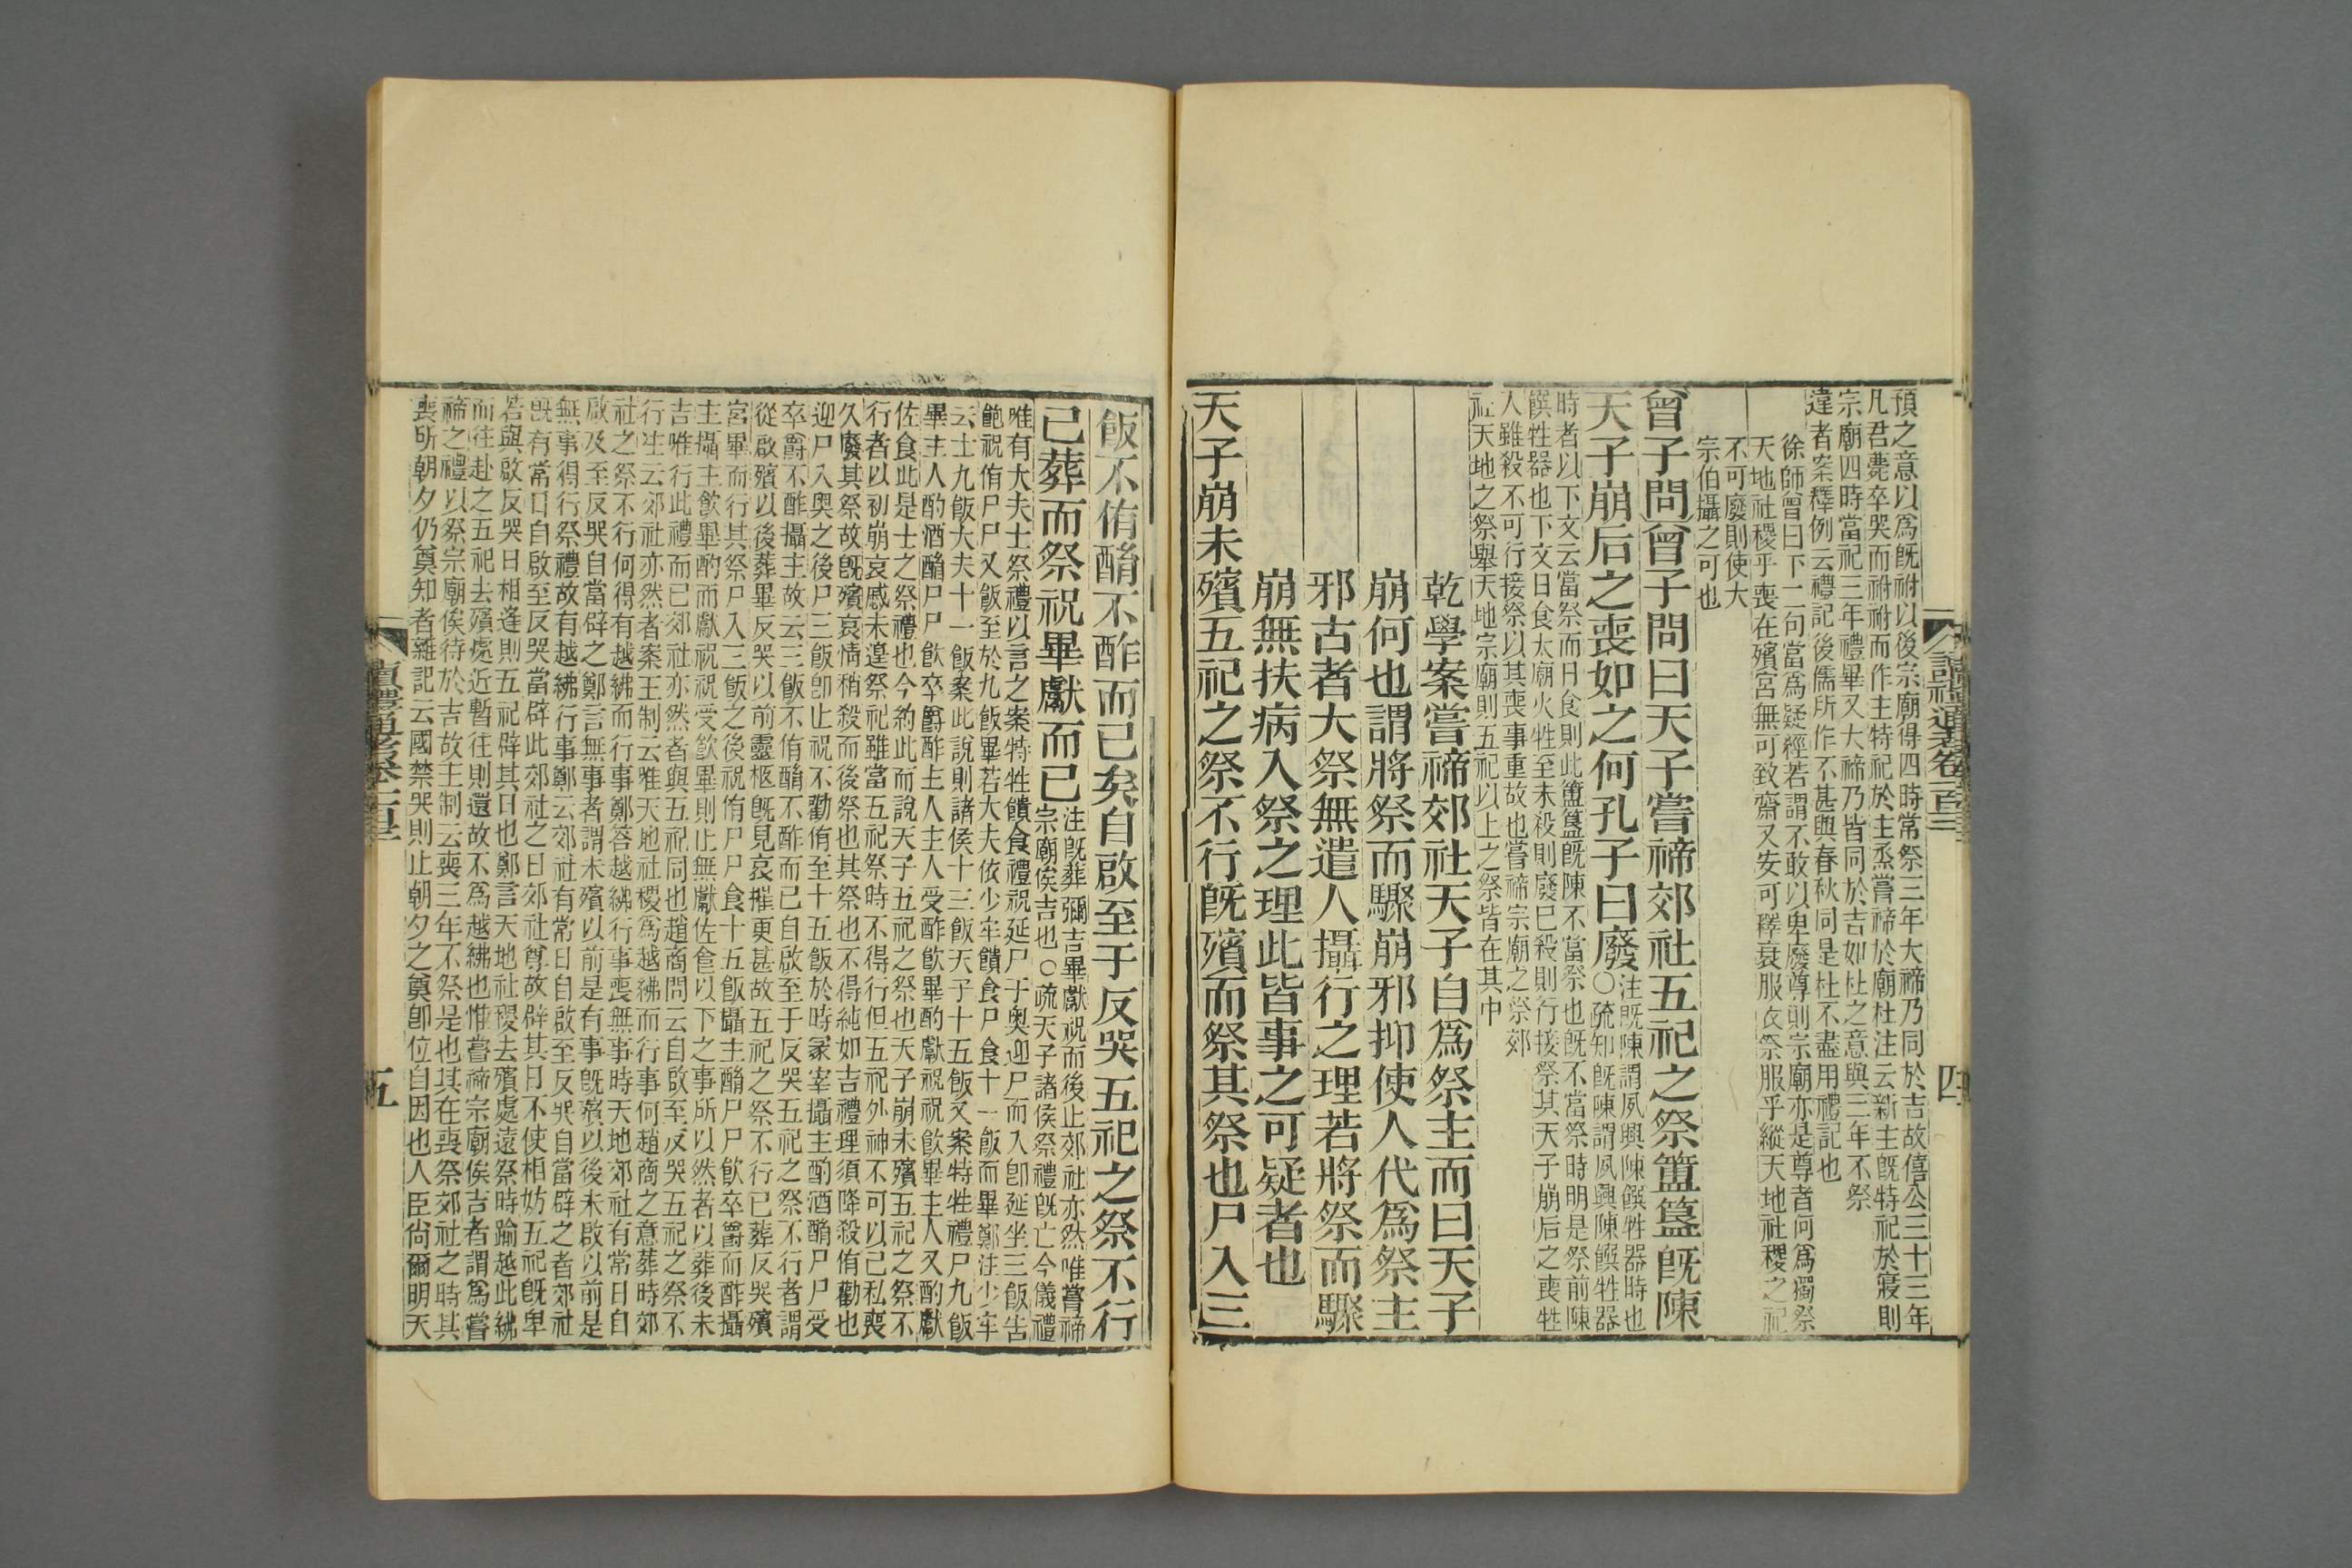 預之意以爲旣祔以後宗廟得四時常祭三年大禘乃同於吉故僖公三十三年
凡君薨卒哭而祔祔而作主特祀於主烝嘗禘於廟杜注云新主旣特祀於寢則
宗廟四時當祀三年禮畢又大禘乃皆同於吉如杜之意與三年不祭
違者案釋例云禮記後儒所作不甚與春秋同是杜不盡用禮記也
徐師曾曰下二句當爲疑經若謂不敢以卑廢尊則宗廟亦是尊者何爲獨祭
天地社稷乎喪在殯宮無可致齋又安可釋衰服衣祭服乎縱天地社稷之祀
不可廢則使大
宗伯攝之可也
曾子問曾子問曰天子嘗禘郊社五祀之祭簠簋旣陳
天子崩后之喪如之何孔子曰廢
注旣陳謂夙興陳饌牲器時也
○疏知旣陳謂夙興陳饌牲器
時者以下文云當祭而日食則此簠簋旣陳不當祭也旣不當祭時明是祭前陳
饌牲器也下文日食太廟火牲至未殺則廢已殺則行接祭其天子崩后之喪牲
入雖殺不可行接祭以其喪事重故也嘗禘宗廟之祭郊
社天地之祭舉天地宗廟則五祀以上之祭皆在其中
乾學案嘗禘郊社天子自爲祭主而曰天子
崩何也謂將祭而驟崩邪抑使人代爲祭主
邪古者大祭無遣人攝行之理若將祭而驟
崩無扶病入祭之理此皆事之可疑者也
天子崩未殯五祀之祭不行旣殯而祭其祭也尸入三
讀禮通考卷一百三
四
飯不侑酳不酢而已矣自啟至于反哭五祀之祭不行
已葬而祭祝畢獻而已
注旣葬彌吉畢獻祝而後止郊社亦然唯嘗禘
宗廟俟吉也○疏天子諸侯祭禮旣亡今儀禮
唯有大夫士祭禮以言之案特牲饋食禮祝延尸于奧迎尸而入卽延坐三飯告
飽祝侑尸尸又飯至於九飯畢若大夫依少牢饋食尸食十一飯而畢鄭注少牢
云士九飯大夫十一飯案此說則諸侯十三飯天子十五飯又案特牲禮尸九飯
畢主人酌酒酳尸尸飲卒爵酢主人主人受酢飲畢酌獻祝祝飲畢主人又酌獻
佐食此是士之祭禮也今約此而說天子五祀之祭也天子崩未殯五祀之祭不
行者以初崩哀慼未遑祭祀雖當五祀祭時不得行但五祀外神不可以己私喪
久廢其祭故旣殯哀情稍殺而後祭也其祭也不得純如吉禮理須降殺侑勸也
迎尸入奧之後尸三飯卽止祝不勸侑至十五飯於時冡宰攝主酌酒酳尸尸受
卒爵不酢攝主故云三飯不侑酳不酢而已自啟至于反哭五祀之祭不行者謂
從啟殯以後葬畢反哭以前靈柩旣見哀摧更甚故五祀之祭不行已葬反哭殯
宮畢而行其祭尸入三飯之後祝侑尸尸食十五飯攝主酳尸尸飲卒爵而酢攝
主攝主飲畢酌而獻祝祝受飲畢則止無獻佐食以下之事所以然者以葬後未
吉唯行此禮而已郊社亦然者與五祀同也趙商問云自啟至反哭五祀之祭不
行注云郊社亦然者案王制云唯天地社稷爲越紼而行事何趙商之意葬時郊
社之祭不行何得有越紼而行事鄭答越紼行事喪無事時天地郊社有常日自
啟及至反哭自當辟之鄭言無事者謂未殯以前是有事旣殯以後未啟以前是
無事得行祭禮故有越紼行事鄭云郊社有常日自啟至反哭自當辟之者郊社
旣有常日自啟至反哭當辟此郊社之日郊社尊故辟其日不使相妨五祀旣卑
若與啟反哭日相逢則五祀辟其日也鄭言天地社稷去殯處遠祭時踰越此紼
而往赴之五祀去殯處近暫往則還故不爲越紼也惟嘗禘宗廟俟吉者謂爲嘗
禘之禮以祭宗廟俟待於吉故王制云喪三年不祭是也其在喪祭郊社之時其
喪所朝夕仍奠知者雜記云國禁哭則止朝夕之奠卽位自因也人臣尙爾明天
五